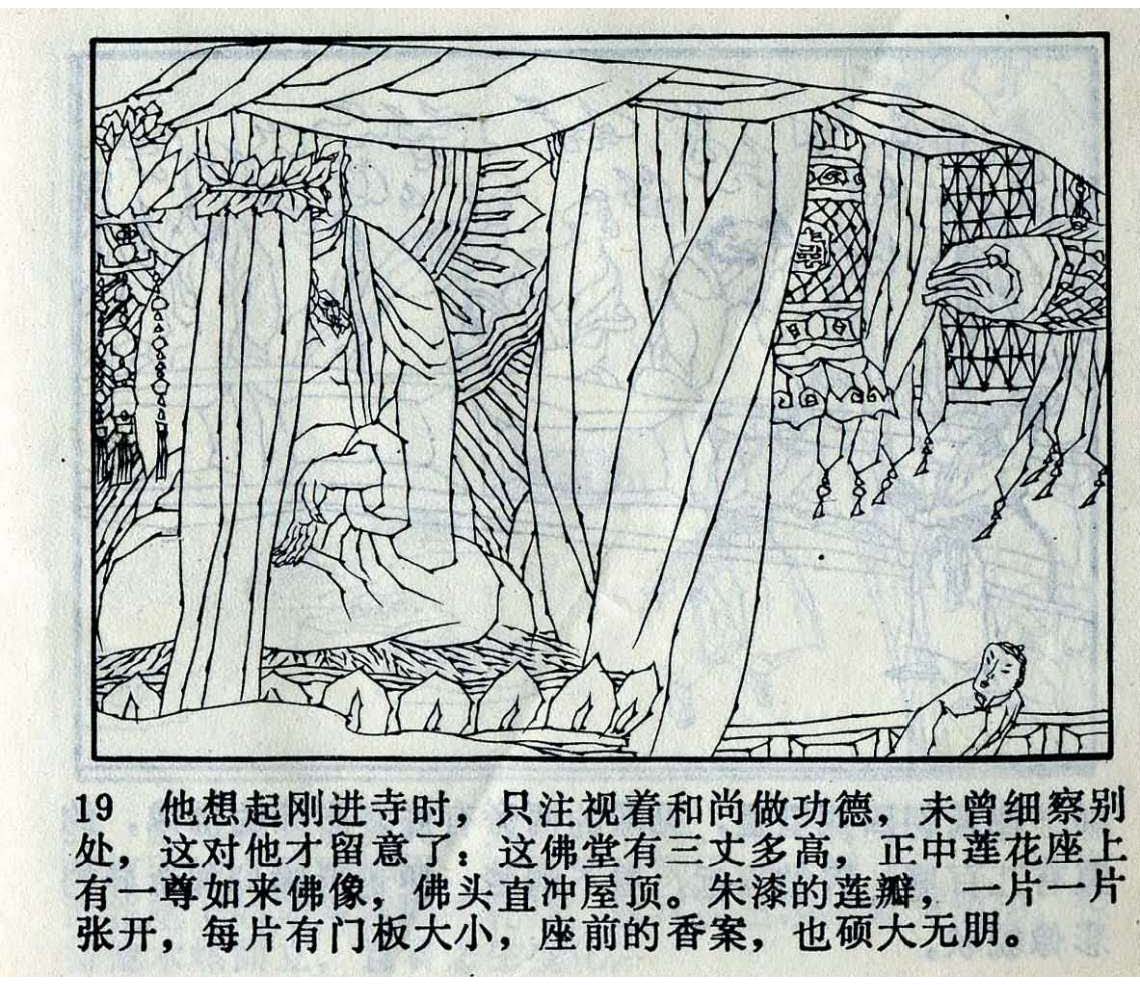 19 他想起刚进寺时，只注视着和尚做功德，未曾细察别
处，这对他才留意了：这佛堂有三丈多高，正中莲花座上
有一尊如来佛像，佛头直冲屋顶。朱漆的莲瓣，一片一片
张开，每片有门板大小，座前的香案，也硕大无朋。